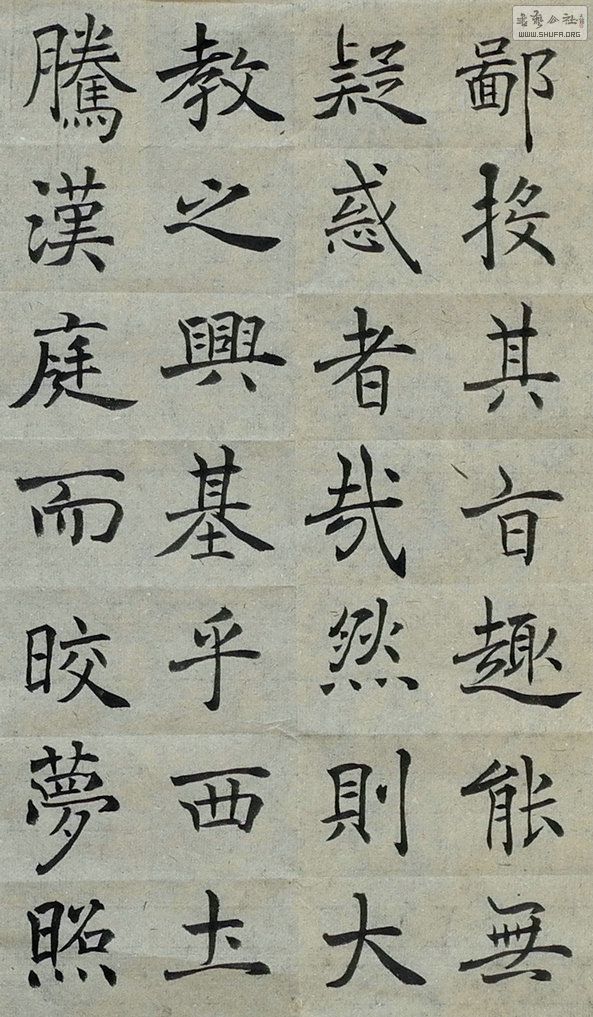 鄙投其旨趣能無
疑惑者哉然則大
教之興基乎西土
騰漢庭而晈夢照
書藝公社
WWW.SHUFA.ORG